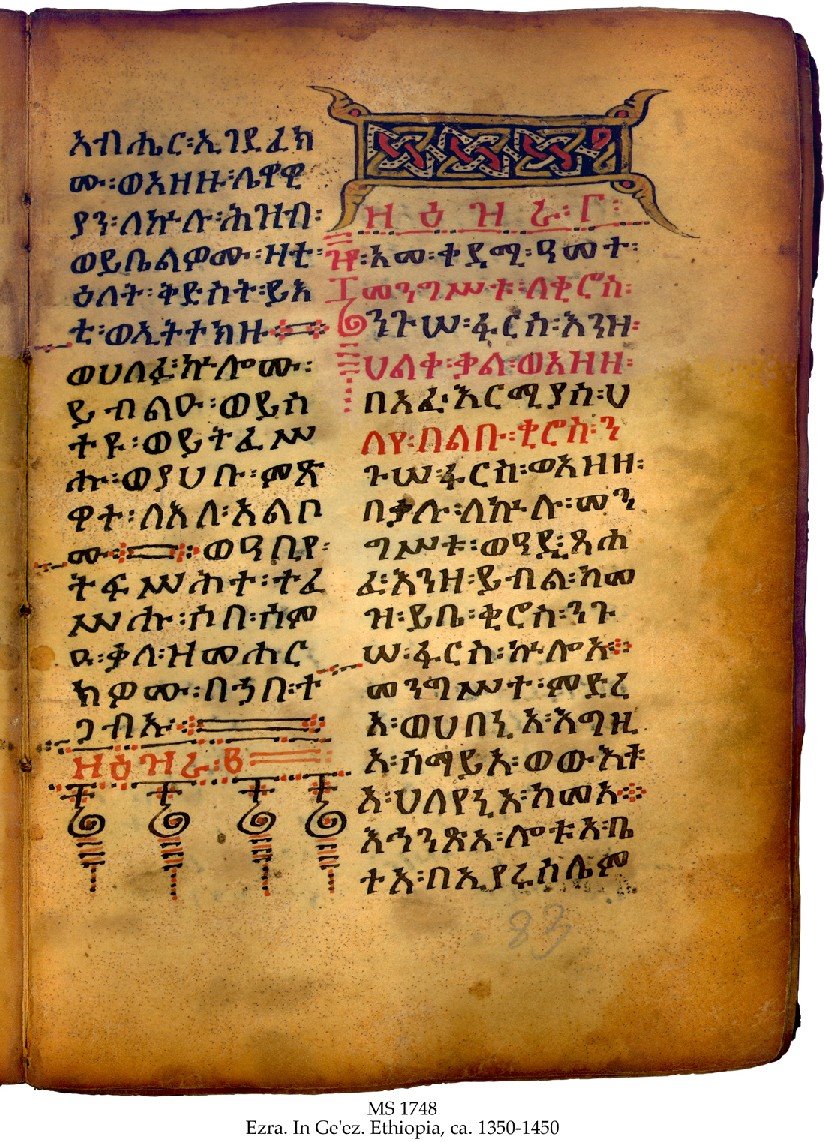 ኣብሔር፡ኢገደፈክ
ሙ፡ወአዘዙ፡ሌዋዊ
ያን፡ለኵሉ፡ሕዝብ፡
ወይቤልዎሙ፡ዛቲ፡
ዕለት፡ቅድስት፡ይእ
ቲ፡ወኢትተክዙ፡
ወሀለፉ፡ኵሎሙ፡
ይብልዑ፡ወይስ
ተዩ፡ወይትፈሥ
ሑ፡ወያሀቡ፡ምጽ
ዋት፡ለእለ፡አልቦ
ሙ፡ወዓቢየ፡
ትፍሥሕተ፡ተፈ
ሥሑ፡ሶበ፡ሰም
ዑ፡ቃለ፡ዝመሐር
ክዎሙ፡በኀበ፡ተ
ጋብኡ፡
ዘዕዝራ፡፪
ዘዕዝራ፡፫፡
፡አመ፡ቀደሚ፡ዓመት፡
መንግሥቱ፡ለቂሮስ፡
ንጉሠ፡ፋርስ፡እንዘ፡
ሀልቀ፡ቃል፡ወአዘዘ፡
በአፈ፡ኤርሚያስ፡ሀ
ለየ፡በልቡ፡ቂሮስ፡ን
ጉሠ፡ፋርስ፡ወአዘዘ፡
በቃሉ፡ለኵሉ፡መን
ግሥቱ፡ወዓዲ፡ጸሐ
ፈ፡እንዘ፡ይብል፡ከመ
ዝ፡ይቤ፡ቂሮስ፡ንጉ
ሠ፡ፋርስ፡ኵሎአ
መንግሥተ፡ምድረ
አ፡ወሀበኒ፡አ፡እግዚ
አ፡ሰማይአ፡ወውእቱ
አ፡ሀለየኒ፡አ፡ከመአ
እኅንጽአ፡ሎቱአ፡ቤ
ተአ፡በኢየሩሰሌም
83
MS 1748
Ezra. In Ge'ez. Ethiopia, ca. 1350-1450